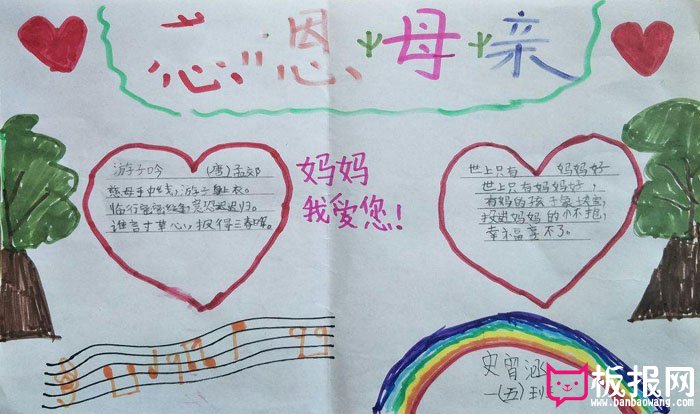 感恩母亲
游子吟 (唐)孟郊
慈母手中线,游子身上衣。
临行密密缝,意恐迟迟归。
谁言寸草心,报得三春晖。
妈妈
我爱您!
世上只有 妈妈好
世上只有妈妈好,
有妈的孩子象块宝,
投进妈妈的怀抱,
幸福享不了。
一(五)班
板报网
www.banbaowang.com